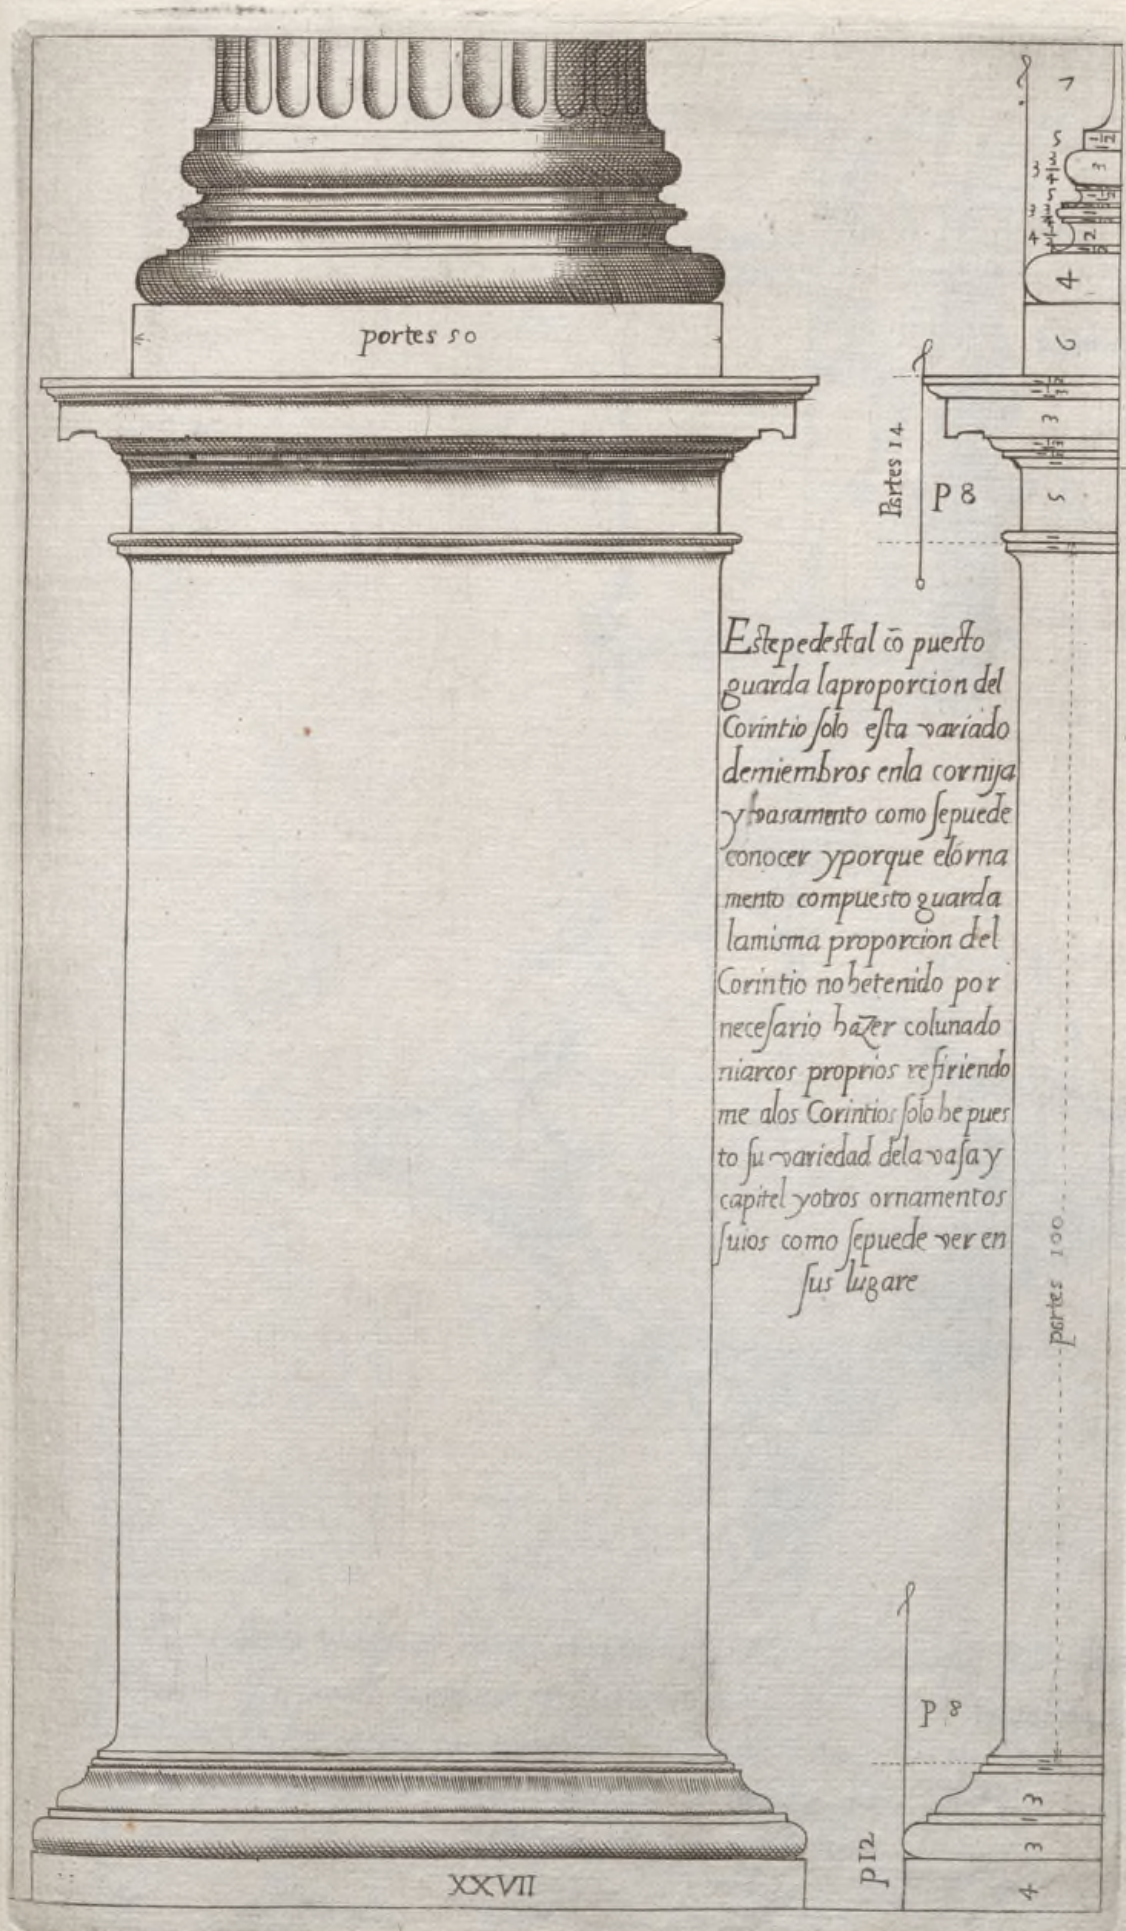 portes 50
Partes 14
P 8
Este pedestal cō puesto
guarda laproporcion del
Corintio solo esta variado
demiembros enla cornija
y basamento como sepuede
conocer yporque elórna
mento compuesto guarda
lamisma proporcion del
Corintio nohetenido por
necesario haZer colunado
niarcos proprios refiriendo
me alos Corintios solo he pues
to su variedad dela vasa y
capitel yotros ornamentos
suios como sepuede ver en
sus lugare
partes 100
P 8
P 12
XXVII
7
5
1 1/2
3 3/4
3
5
4
2
4
6
3
5
3
1
3
4